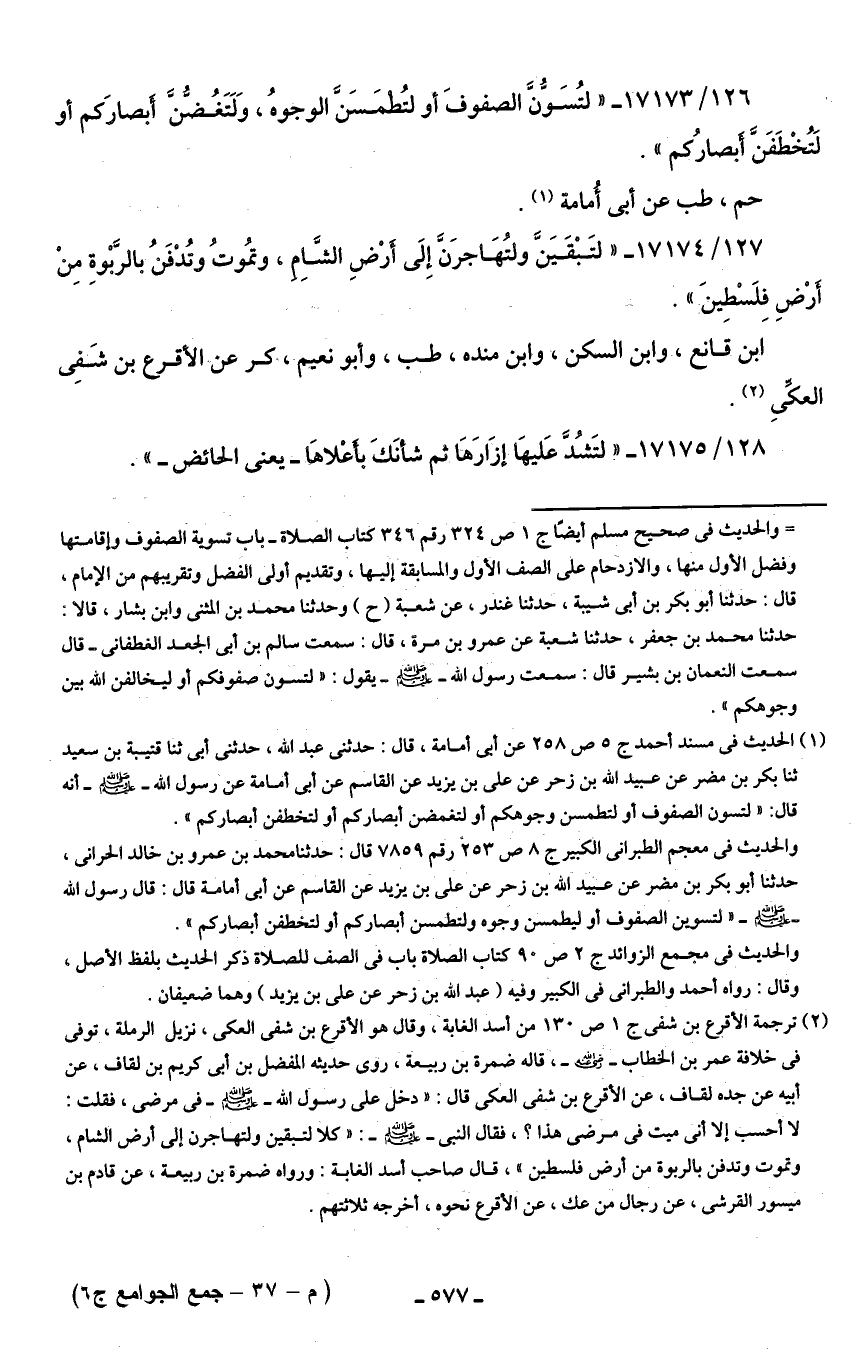 ١٧١٧٣/١٢٦ـ « لتُسَوُّنَّ الصفوفَ أو لتُطْمَسَنَّ الوجوهُ ، وَلَتَغُضُّنَّ أبصارَكم أو
لَتُخْطَفَنَّ أَبصارُكم » .
حم ، طب عن أبى أُمامة (١) .
١٧١٧٤/١٢٧ـ « لَتَبْقَيَنَّ ولتُهَاجرَنَّ إلَى أَرْضِ الشَّامِ ، وتمُوتُ وتُدْفَنُ بالرَّبْوةِ مِنْ
أَرْضِ فِلَسْطِينَ » .
ابن قانع ، وابن السكن ، وابن منده ، طب ، وأبو نعيم ، كر عن الأقرع بن شَفِى
العكِّىِ (٢) .
١٧١٧٥/١٢٨ـ « لتَشُدَّ عَليهَا إزَارَهَا ثم شأنَكَ بأَعْلاهَا ـ يعنى الحائض ـ » .
= والحديث فى صحيح مسلم أيضًا ج ١ ص ٣٢٤ رقم ٣٤٦ كتاب الصلاة ـ باب تسوية الصفوف وإقامتها
وفضل الأول منها ، والازدحام على الصف الأول والمسابقة إليها ، وتقديم أولى الفضل وتقريبهم من الإمام ،
قال : حدثنا أبو بكر بن أبى شيبة ، حدثنا غندر ، عن شعبة ( ح ) وحدثنا محمد بن المثنى وابن بشار ، قالا :
حدثنا محمد بن جعفر ، حدثنا شعبة عن عمرو بن مرة ، قال : سمعت سالم بن أبى الجعد الغطفانى ـ قال
سمعت النعمان بن بشير قال : سمعت رسول الله ـ ﷺ ـ يقول : « لتسون صفوفكم أو ليخالفن الله بين
وجوهكم » .
(١) الحديث فى مسند أحمد ج ٥ ص ٢٥٨ عن أبى أمامة ، قال : حدثنى عبد الله ، حدثنى أبى ثنا قتيبة بن سعيد
ثنا بكر بن مضر عن عبيد الله بن زحر عن على بن يزيد عن القاسم عن أبى أمامة عن رسول الله ـ ﷺ ـ أنه
قال: « لتسون الصفوف أو لتطمسن وجوهكم أو لتغمضن أبصاركم أو لتخطفن أبصاركم » .
والحديث فى معجم الطبرانى الكبير ج ٨ ص ٢٥٣ رقم ٧٨٥٩ قال : حدثنامحمد بن عمرو بن خالد الحرانى ،
حدثنا أبو بكر بن مضر عن عبيد الله بن زحر عن على بن يزيد عن القاسم عن أبى أمامة قال : قال رسول الله
ـ ﷺ ـ « لتسوين الصفوف أو ليطمسن وجوه ولتطمسن أبصاركم أو لتخطفن أبصاركم » .
والحديث فى مجمع الزوائد ج ٢ ص ٩٠ كتاب الصلاة باب فى الصف للصلاة ذكر الحديث بلفظ الأصل ،
وقال : رواه أحمد والطبرانى فى الكبير وفيه ( عبد الله بن زحر عن على بن يزيد ) وهما ضعيفان .
(٢) ترجمة الأقرع بن شفى ج ١ ص ١٣٠ من أسد الغابة ، وقال هو الأقرع بن شفى العكى ، نزيل الرملة ، توفى
فى خلافة عمر بن الخطاب ـ رضي الله عنه ـ ، قاله ضمرة بن ربيعة ، روى حديثه المفضل بن أبى كريم بن لقاف ، عن
أبيه عن جده لقاف ، عن الأقرع بن شفى العكى قال : « دخل على رسول الله ـ ﷺ ـ فى مرضى ، فقلت :
لا أحسب إلا أنى ميت فى مرضى هذا ؟ ، فقال النبى ـ ﷺ ـ : « كلا لتبقين ولتهاجرن إلى أرض الشام ،
وتموت وتدفن بالربوة من أرض فلسطين » ، قال صاحب أسد الغابة : ورواه ضمرة بن ربيعة ، عن قادم بن
ميسور القرشى ، عن رجال من عك ، عن الأقرع نحوه ، أخرجه ثلاثتهم .
ـ ٥٧٧ ـ
( م – ٣٧ – جمع الجوامع ج٦)